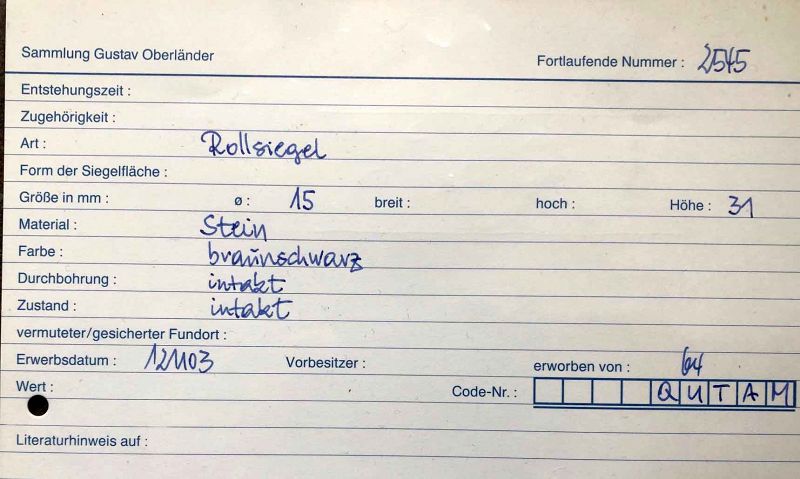 Sammlung Gustav Oberländer Fortlaufende Nummer : 2545
Entstehungszeit :
Zugehörigkeit :
Art : Rollsiegel
Form der Siegelfläche :
Größe in mm : ø : 15 breit : hoch : Höhe : 31
Material : Stein
Farbe : braunschwarz
Durchbohrung : intakt
Zustand : intakt
vermuteter/gesicherter Fundort :
Erwerbsdatum : Vorbesitzer : erworben von : 64
Wert : Code-Nr. : QUTAM
Literaturhinweis auf :